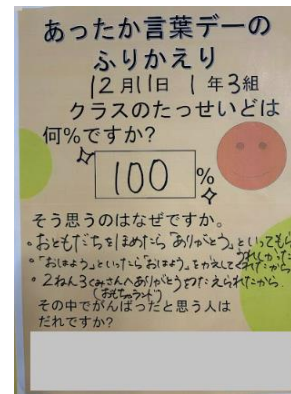 あったか言葉デーの
ふりかえり
12月11日 1年3組
クラスのたっせいどは
何%ですか?
100%
そう思うのはなぜですか。
・おともだちをほめたら「ありがとう」といってもらい
うれしかった
・「おはよう」といったら「おはよう」をかえしてくれたから
・2ねん3くみさんへありがとうをつたえられたから。
(おもちゃランド)
その中でがんばったと思う人は
だれですか?